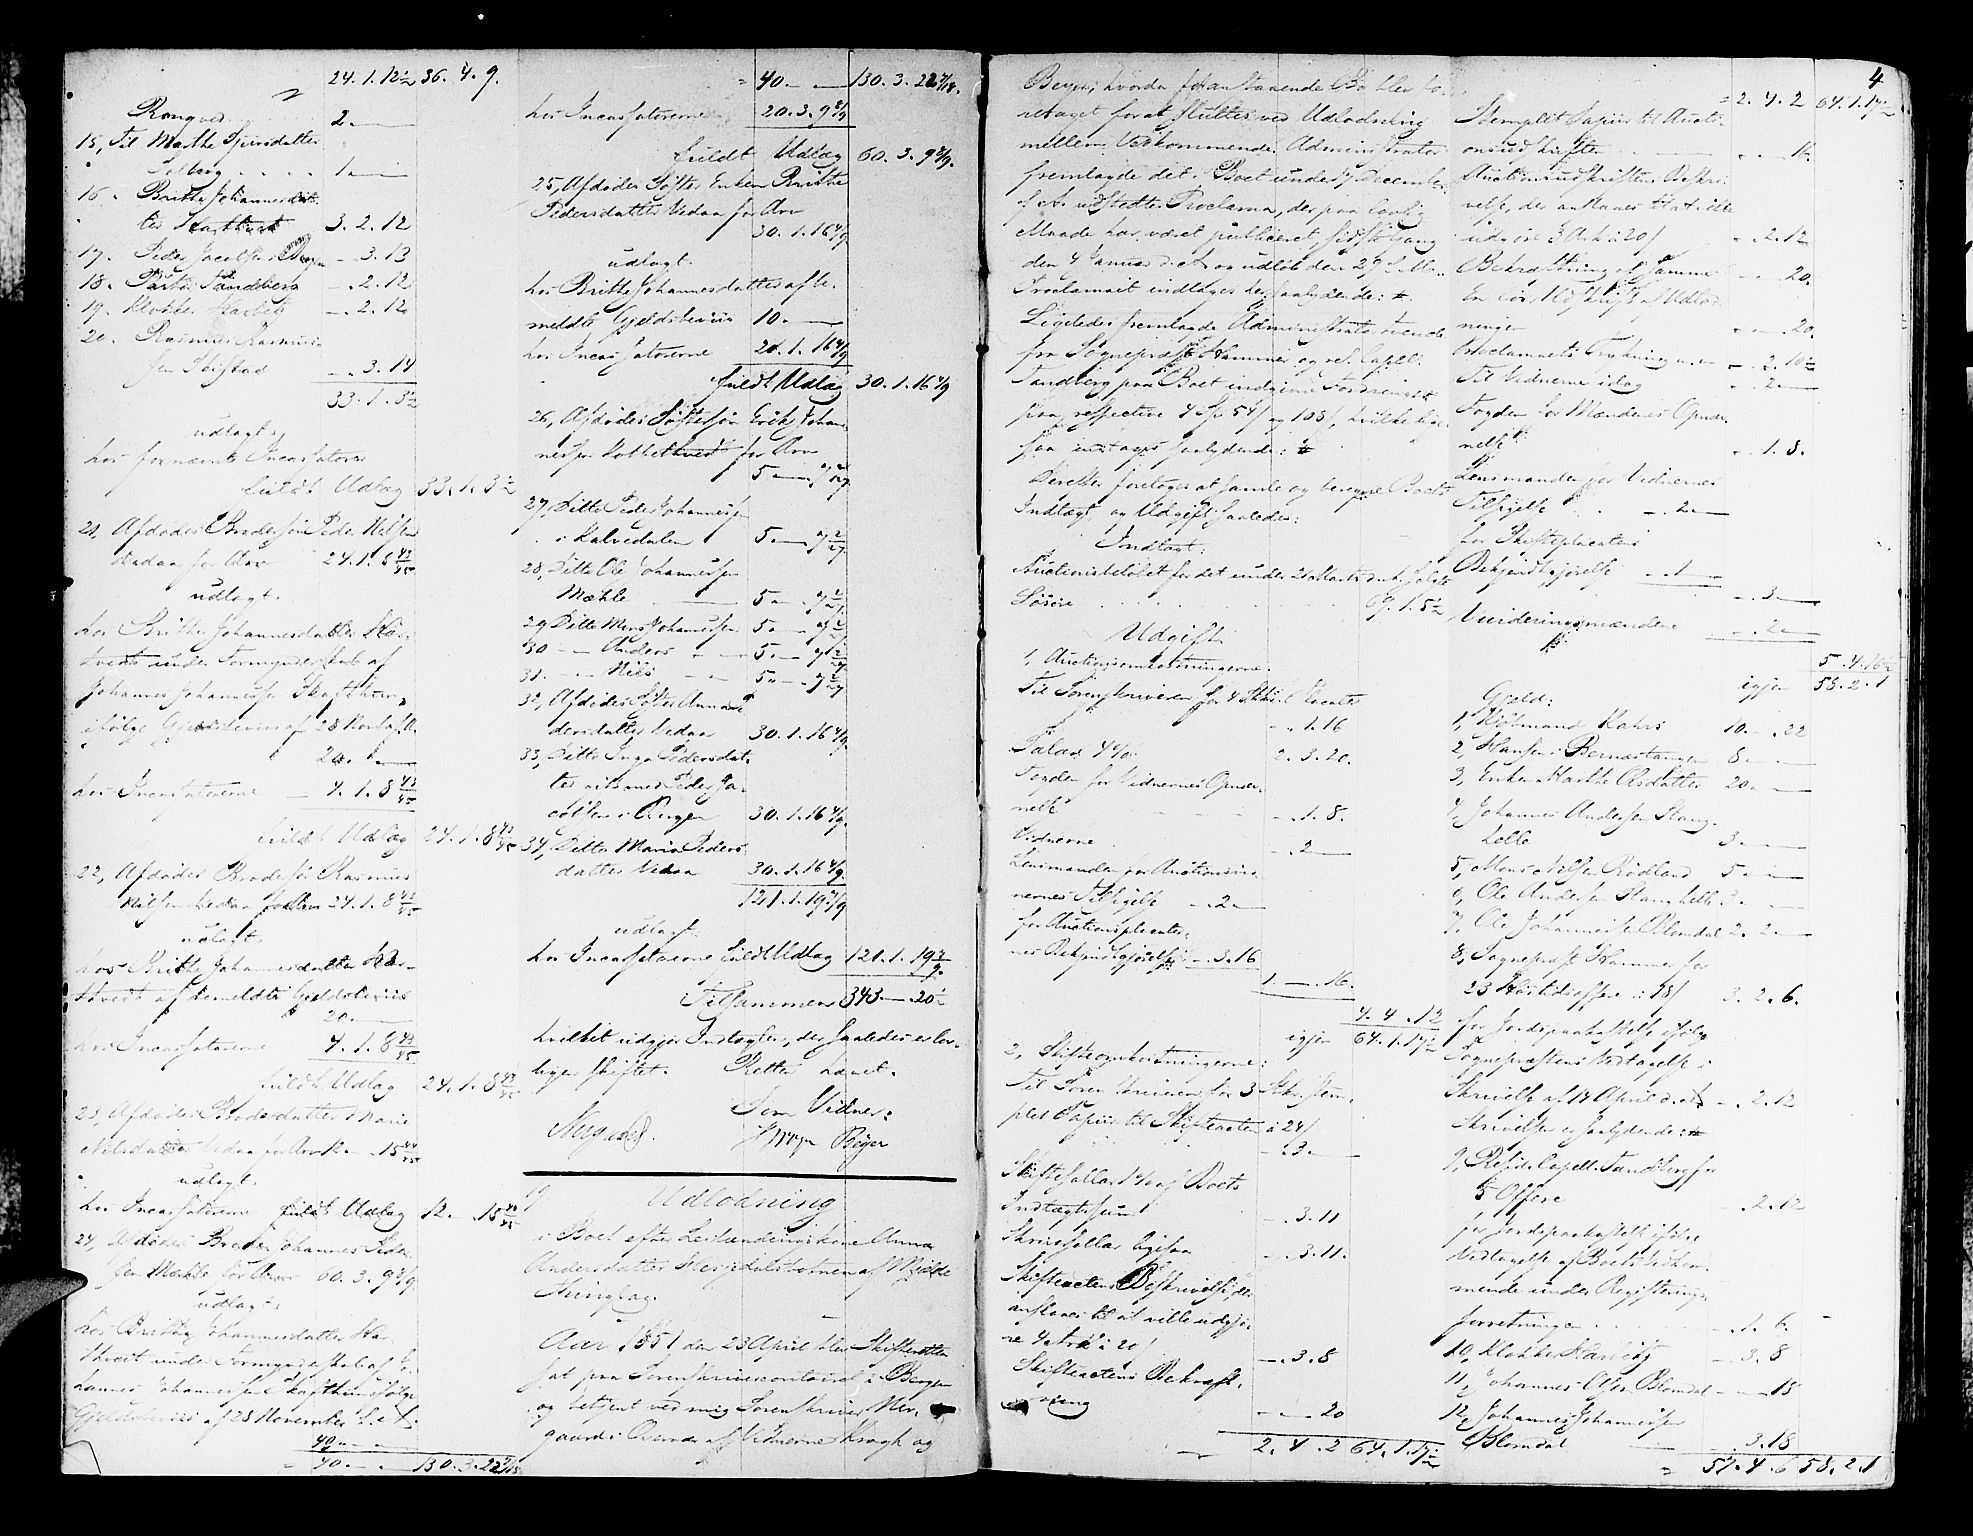 24.1.12½ 36.4.9.
Rongved 2.
15, Til Marthe
Solberg . . . . 1
16. Brithe Johannesdat-
ter 3.2.12
17. Peder Jacobsen - .3.13
18. Præsten Sandberg - .2.12
19. Klokker Harbitz - .2.12
20. Rasmus Rasmus-
sen - .3.14
33.1.3½
udlagt.
hos fornævnte Incassatorer
fuldt Udlæg 33.1.3½
21, Afdødes Brodersøn Peder Nilsen
Vedaa for Arv 24.1.8 43/45
udlagt.
hos Brithe Johannesdatter Har-
tvedt under Formynderskab af
Johannes Johannessen
ifølge Gjeldsbeviis af 28 Novbr f. A.
20.
hos Incassatorerne 4.1.8 43/45
fuldt Udlæg 24.1.8 43/45
22, Afdødes Brodersøn Rasmus
Nilsen Vedaa for Arv 24.1.8 43/45
udlagt.
hos Brithe Johannesdatter Har-
tvedt af bemeldte Gjeldsbeviis
20.
hos Incassatorerne 4.1.8 43/45
fuldt Udlæg 24.1.8 43/45
23, Afdødes Broderdatter Marie
Nilsdatter Vedaa for Arv 12. - .15 44/45
udlagt.
hos Incassatorerne fuldt Udlæg 12. - .15 44/45
24, Afdødes Broder Johannes Peder-
sen Mæhle for Arv 60.3.9 8/9
udlagt.
hos Brithe Johannesdatter Har-
tvedt under Formynderskab af Jo-
hannes Johannessen ifølge
Gjeldsbeviis af 28 November f. A.
40. - -
= 40. - . 130.3.22
= 40. - - 130.3.22
hos Incassatorerne 20.3.9 8/9
fuldt Udlæg 60.3.9 8/9.
25, Afdødes Søster Enken Brithe
Pedersdatter Vedaa for Arv
30.1.16 4/9
udlagt.
hos Brithe Johannesdatter af be-
meldte Gjeldsbeviis 10.
hos Incassatorerne 20.1.16 4/9
fuldt Udlæg 30.1.16 4/9
26, Afdødes Søstersøn Erik Johan-
nessen for Arv
5
27, Ditto Peder Johannessen
i Kalvedalen 5
28, Ditto Ole Johannessen
Mæhle 5
29 Ditto Mons Johannessen 5
30 - Anders - 5
31. - Nils - 5
32, Afdødes Søster Anna Pe-
dersdatter Vedaa 30.1.16 4/9.
33, Ditto Inga Pedersdat-
ter gift med Peder Ja-
cobsen Ringen 30.1.16 4/9.
34, Ditto Maria Peders-
datter Vedaa 30.1.16 4/9.
121.1.19 7/9
udlagt.
hos Incassatorerne fuldt Udlæg 121.1.19 7/9.
Tilsammen 343. - .20½
hvilket udgjør Indtægten, der saaledes er lov-
ligen skiftet. Retten hævet.
Som Vidner:
Nergaard. Krogh Beyer
Udlodning
i Boet efter Leilændingskone Anna
Andersdatter af Mjelde
Thinglag.
Aar 1851 den 23 April blev Skifteretten
sat paa Sorenskrivercontoiret i Bergen
og betjent ved mig Sorenskriver Ner-
gaard i Overvær af Vidnerne Krogh og
4
Beyer, hvorda foranstaaende Bo blev fo-
retaget for at sluttes ved Udlodning
mellem Vedkommende. Administrator
fremlagde det i Boet under 7 December
f. A. udstedte Proclama, der paa lovlig
Maade har været publiceret sidste Gang
den 4 Januar d. A. og udløb den
Proclamaet indtages her saalydende:
Ligeledes fremlagde Administrator tvende
fra Sogneprest Hammer og res. Capell.
Sandberg paa Boet indgivne Fordringer
paa respective 4 Spd 54 s og 108 s, hvilke lige-
saa indtages saalydende:
Derefter foretoges at samle og beregne Boets
Indtægt og Udgift saaledes:
Indtægt:
Auctionsbeløbet for det under 21 Marts d. A. solgte
Løsøre . . . . 69.1.5½
Udgift
1, Auctionsomkostningerne:
Til Sorenskriveren for 4
- .1.16
Salær 4% 2.3.20.
Fogden for Vidnernes Opnæv-
nelse - .1.8.
Vidnerne - .2
Lensmanden for Auctionsvid-
nernes Tilsigelse - .2
for Auctionsplacater-
nes Bekjendtgjørelse - .3.16
1. - .16.
4.4.12
igjen 64.1.17½
2, Skifteomkostningerne:
Til Sorenskriveren for 3 Ark stem-
plet Papiir til Skifteacten à 24 s
- .3
Skiftesallar 1% af Boets
Indtægtssum - .3.11
Skriversallar ligesaa - .3.11.
Skifteactens Beskrivelse, der
ansloges til at ville udgjø-
re 4 Ark à 20 s
- .3.8
Skifteactens Bekræft-
ning
- . - .20
2.4.2 64.1.17½
= 2.4.2 64.1.17½
Stemplet Papiir til Aucti-
onsudskriften - .16.
Auctionsudskriftens Beskri-
velse, der
udgjøre 3 Ark à 20 s - .2.12
Bekræftning af samme - . - 20.
En Udskrift af Udlod-
ningen - . - .20.
Proclamaets Trykning m. m. - .2.10½
Til Vidnerne idag - .2
Fogden for Mændenes Opnæv-
nelse - .1.8.
Lensmanden for Vidnernes
Tilsigelse - .2
for Skifteplacatens
Bekjendtgjørelse - .1
- .3
Vurderingsmændene - .2
5.4.16½
igjen 58.2.1
Gjæld:
1, Kjøbmand Kahrs 10. - .22
2, Hansen i 8
3, Enken Marthe Olsdatter 20
4, Johannes Andersen Stang-
helle 3
5, Mons Nilsen Rødland 5
6, Ole Andersen Stanghelle 3
7, Ole Johannessen Blomdal 2.2
8, Sogneprest Hammer for
23 Høitidsoffere à 18 s 3.2.6.
for Jordspaakastelse ifølge
Sogneprestens Vedtagelse i
Skrivelse af 14 April d. A. - .2.12
Skrivelsen er saalydende:
9, Resid. Capell. Sandberg for
5 Offere - .2.12
for Jordspaakastelse ifølge
Vedtagelse af Boets Vedkom-
mende under Registrerings-
forretningen - .1.6.
10, Klokker Harbitz - .3.8
11, Johannes Olsen Blomdal - . - 18
12, Johannes Johannessen
Blomdal - .3.18
= 57.4.6 58.2.1